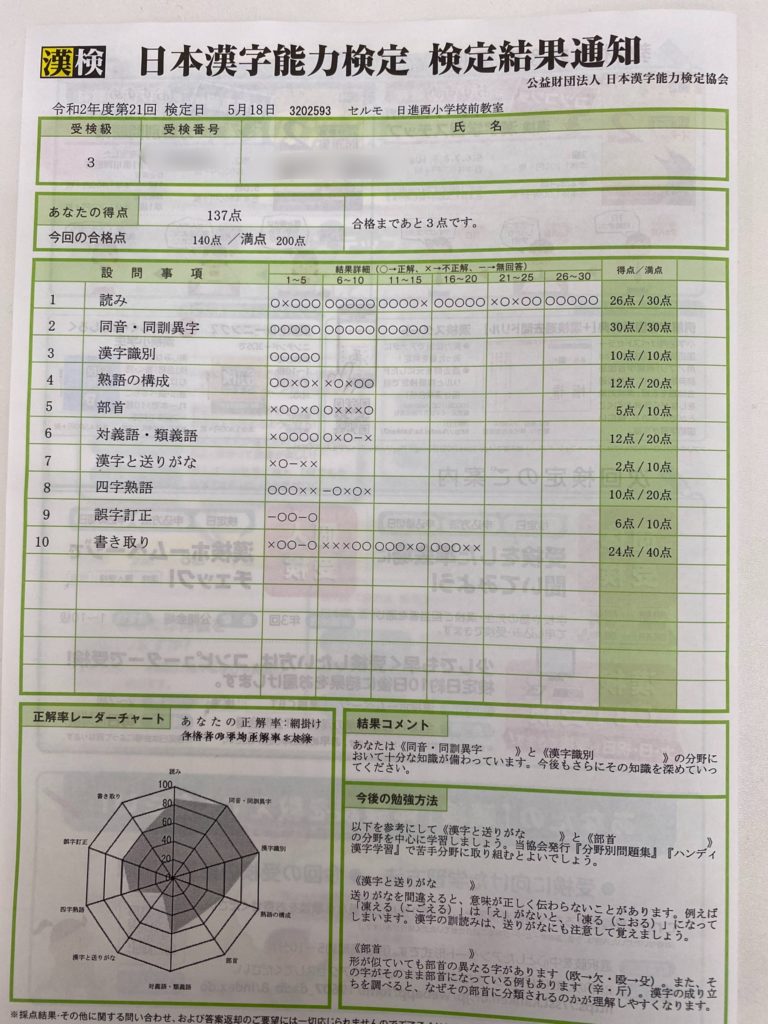 漢検 日本漢字能力検定 検定結果通知
公益財団法人 日本漢字能力検定協会
令和2年度第21回 検定日 5月18日 3202593 セルモ 日進西小学校前教室
受検級 受検番号 氏名
3
あなたの得点 137点
合格まであと3点です。
今回の合格点 140点 /満点 200点
設問事項 結果詳細(○→正解、×→不正解、−→無回答) 得点/満点
1~5 6~10 11~15 16~20 21~25 26~30
1 読み ○×○○○ ○○○○○ ○○○○× ○○○○○ ×○×○○ ○○○○○ 26点/30点
2 同音・同訓異字 ○○○○○ ○○○○○ ○○○○○ 30点/30点
3 漢字識別 ○○○○○ 10点/10点
4 熟語の構成 ○○×○× ×○×○○ 12点/20点
5 部首 ×○○×○ ○×××○ 5点/10点
6 対義語・類義語 ×○○○○ ○×○−× 12点/20点
7 漢字と送りがな ×○−×× 2点/10点
8 四字熟語 ○○○×× −○×○× 10点/20点
9 誤字訂正 −○○−○ 6点/10点
10 書き取り ×○○−○ ×××○○ ○○○×○ ○○○×× 24点/40点
正解率レーダーチャート あなたの正解率:網掛け
合格者の平均正解率:太線
読み
同音・同訓異字
漢字識別
熟語の構成
部首
対義語・類義語
漢字と送りがな
四字熟語
誤字訂正
書き取り
100
80
60
40
20
0
結果コメント
あなたは《同音・同訓異字 》と《漢字識別 》の分野に
おいて十分な知識が備わっています。今後もさらにその知識を深めていっ
てください。
今後の勉強方法
以下を参考にして《漢字と送りがな 》と《部首 》
の分野を中心に学習しましょう。当協会発行『分野別問題集』『ハンディ
漢字学習』で苦手分野に取り組むとよいでしょう。
《漢字と送りがな 》
送りがなを間違えると、意味が正しく伝わらないことがあります。例えば
「凍える(こごえる)」は「え」がないと、「凍る(こおる)」になって
しまいます。漢字の訓読みは、送りがなにも注意して覚えましょう。
《部首 》
形が似ていても部首の異なる字があります(欧→欠・殴→殳)。また、そ
の字がそのまま部首になっている例もあります(辛・斤)。漢字の成り立
ちを調べると、なぜその部首に分類されるのかが理解しやすくなります。
※採点結果・その他に関する問い合わせ、および答案返却のご要望には一切応じられませんので